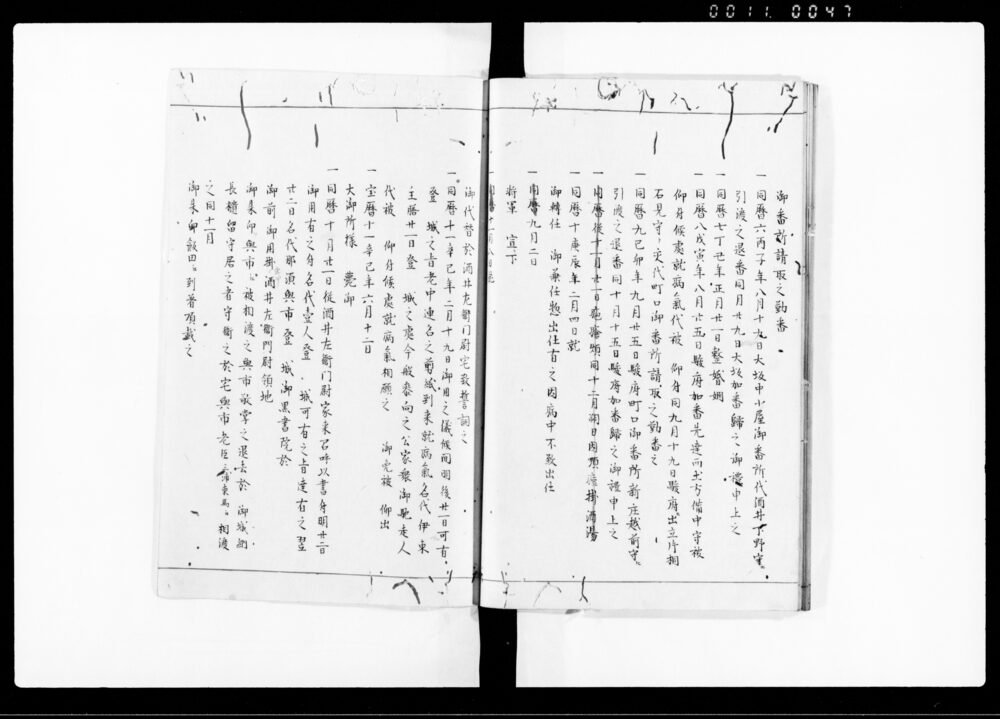 0011 0047
御番所請取之勤番
一同暦六丙子年八月十九日大坂中小屋御番所代酒井下野守江
引渡之退番同月廿九日大坂加番歸之御禮申上之
一同暦七丁丑年正月廿一日整婚姻
一同暦八戊寅年八月廿五日駿府加番先達而土方備中守被
仰付候處就病氣代被 仰付同九月十九日駿府出立片桐
石見守ニ交代町口御番所請取之勤番之
一同暦九己卯年九月廿五日駿府町口御番所新庄越前守江
引渡之退番同十月十五日駿府加番歸之御禮申上之
一同暦後十一月廿一日疱瘡顕同十二月朔日因順 掛酒湯
一同暦十庚辰年二月四日就
御轉任 御兼任惣出仕有之因病中不致出仕
一同暦九月二日
將軍 宣下
御代替於酒井左衞門尉宅致誓詞之
一同暦十一辛巳年二月十九日御用之儀候間明後廿一日可有
登 城之旨老中連名之剪紙到来就病氣名代伊東
主膳廿一日登 城之處今般参向之公家衆御馳走人
代被 仰付候處就病氣相願之 御免被 仰出
一宝暦十一辛巳年六月十二日
大御所様 薨御
一同暦十月廿一日從酒井左衞门尉家来召呼以書付明廿二日
御用有之付名代壹人登 城可有之旨達有之翌
廿二日名代那須與市登 城御黒書院於
御前御用掛酒井左衞門尉領地
御朱印與市江被相渡之與市敬掌之退去於 御城御
長櫃留守居之者守衞之於宅與市老臣 相渡
之同十一月
御朱印飯田江到着頂戴之